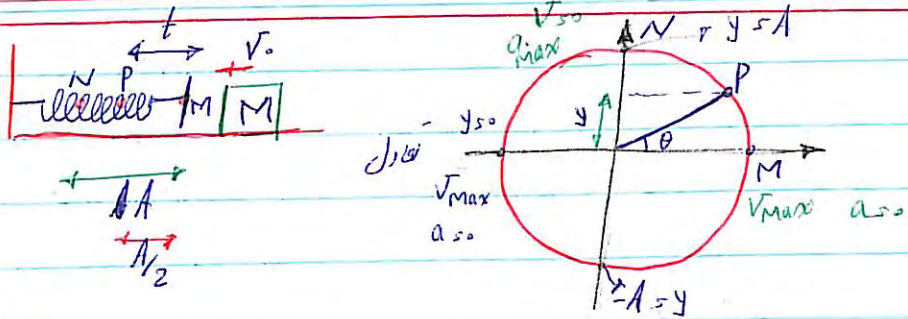 t
V₀
N P
M
M
A
A/2
V=0
a max
N
y=A
P
y
θ
y=0
تعادل
M
V Max
a=0
V Max a=0
-A=y